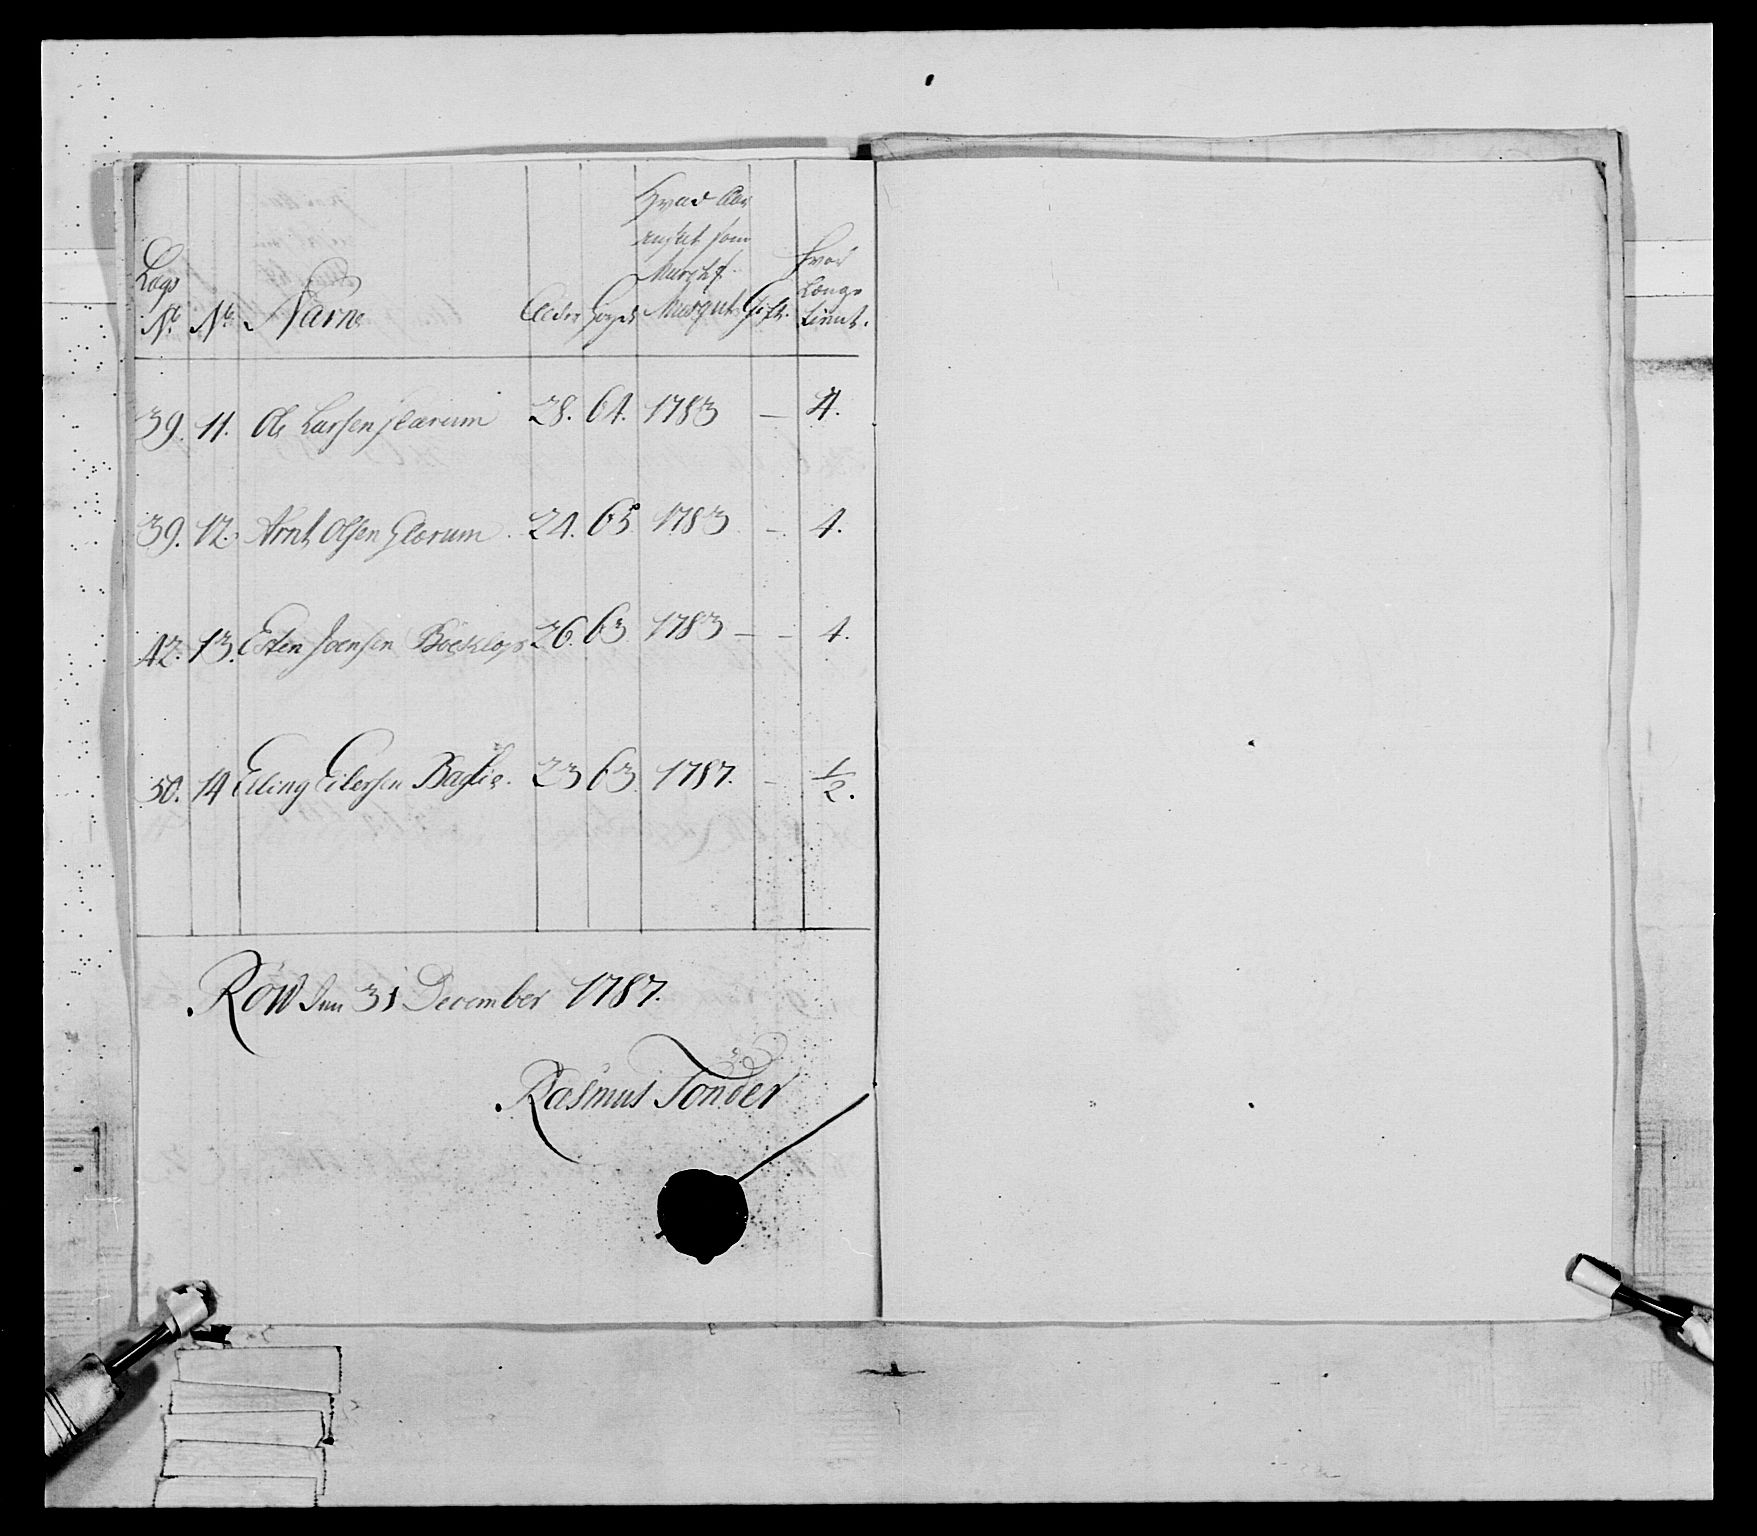 Lægs No. No. Navne Alder Høyde Hvad Aar Gift. Hvor Længe tient.
39. 11. Ole Larsen Glærum 28. 64. 1783 — 4.
39. 12. Arnt Olsen Glærum 24. 65. 1783 — 4.
42. 13. Esten Joensen 26. 63 1783 — 4.
50. 14 Erling Eilersen 23 63 1787. — 1/2.
Röw den 31 December 1787.
Rasmus Tönder